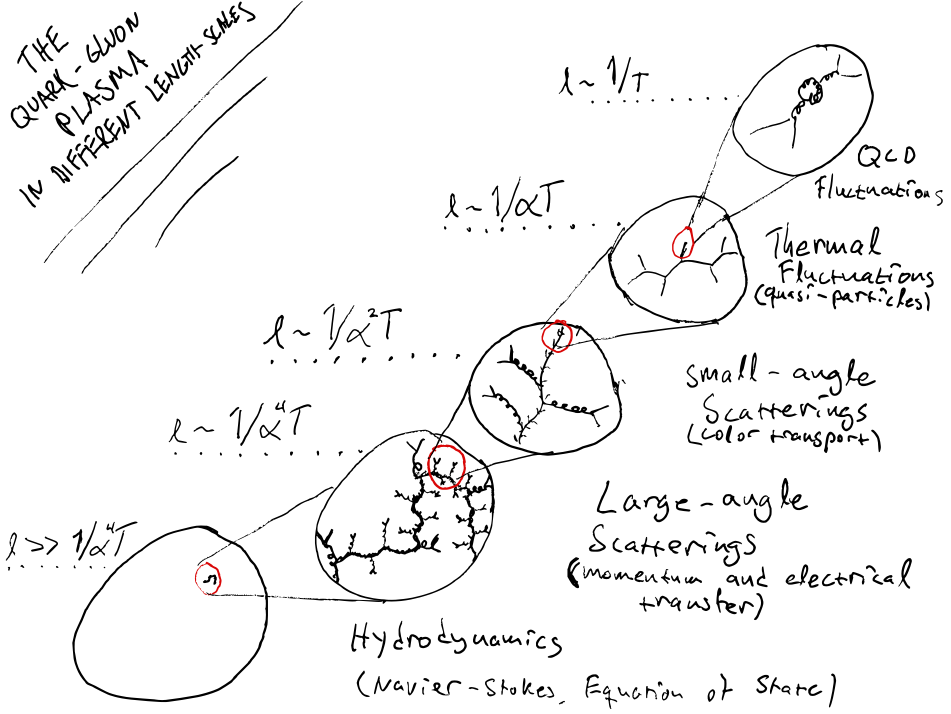 THE
QUARK-GLUON
PLASMA
IN DIFFERENT LENGTH-SCALES
l ~ 1/T
QCD
Fluctuations
l ~ 1/αT
Thermal
Fluctuations
(quasi-particles)
l ~ 1/α²T
small-angle
Scatterings
(color transport)
l ~ 1/α⁴T
Large-angle
Scatterings
(momentum and electrical
transfer)
l >> 1/α⁴T
Hydrodynamics
(Navier-Stokes, Equation of State)